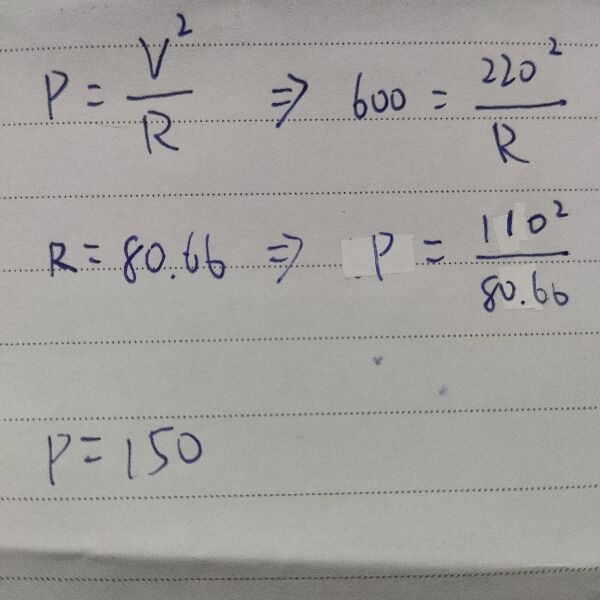 P = V² / R ⇒ 600 = 220² / R
R = 80.66 ⇒ P = 110² / 80.66
P = 150